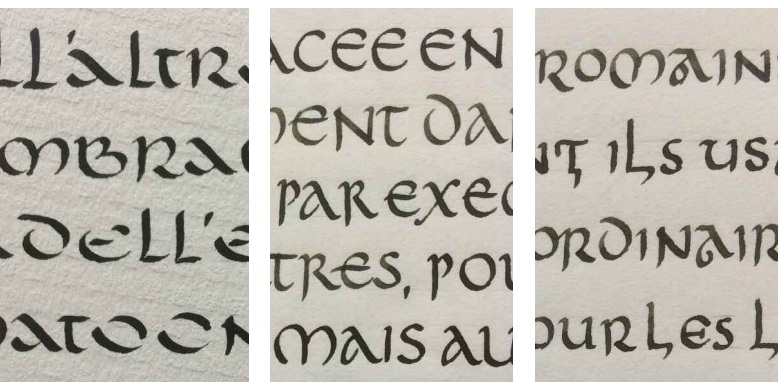 LL'ALTR
MBRA
DELL'E
ACEE EN
MENT DA
PAR EXEC
TRES, POU
MAIS AU
ROMAIN
NT ILS US
ORDINAIR
OUR LES L